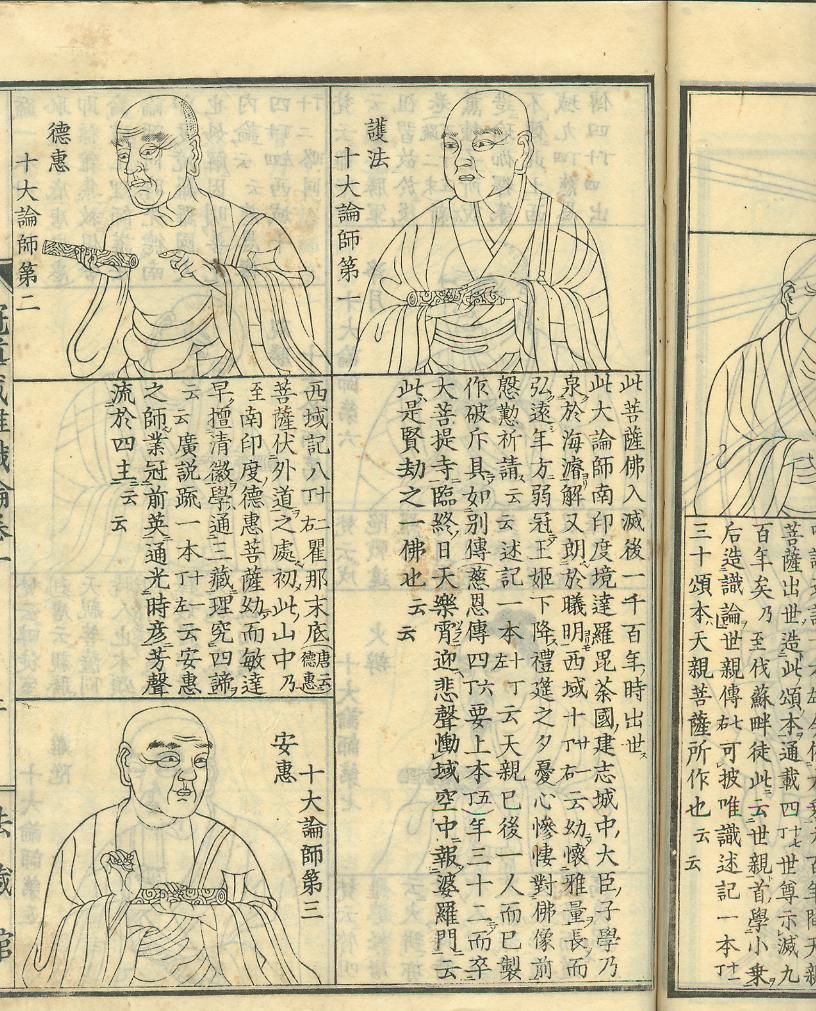 菩薩出世造此頌本通載四十七世尊示滅九
百年矣乃至伐蘇畔徒此云世親首學小乗
后造識論世親傳右可披唯識述記一本丁十二
三十頌本天親菩薩所作也云云
護法
十大論師第一
此菩薩佛入滅後一千百年時出世
此大論師南印度境達羅毘荼國建志城中大臣子學乃
泉於海濬解又朗於曦明西域十丁廿右一云幼懷雅量長而
弘遠年方弱冠王姬下降禮筵之夕憂心慘悽對佛像前
慇懃祈請云云述記一本丁十左云天親已後一人而已製
作破斥具如別傳慈恩傳四丁六要上本丁五年三十二而卒
大菩提寺臨終日天樂霄迎悲聲慟域空中報婆羅門云
此是賢劫之一佛也云云
德惠
十大論師第二
西域記八丁十二右瞿那末底唐云德惠
菩薩伏外道之處初此山中乃
至南印度德惠菩薩幼而敏達
早擅清徽學通三藏理究四諦
云云廣説疏一本丁十一左云安惠
之師業冠前英通光時彦芳聲
流於四主云云
安惠
十大論師第三